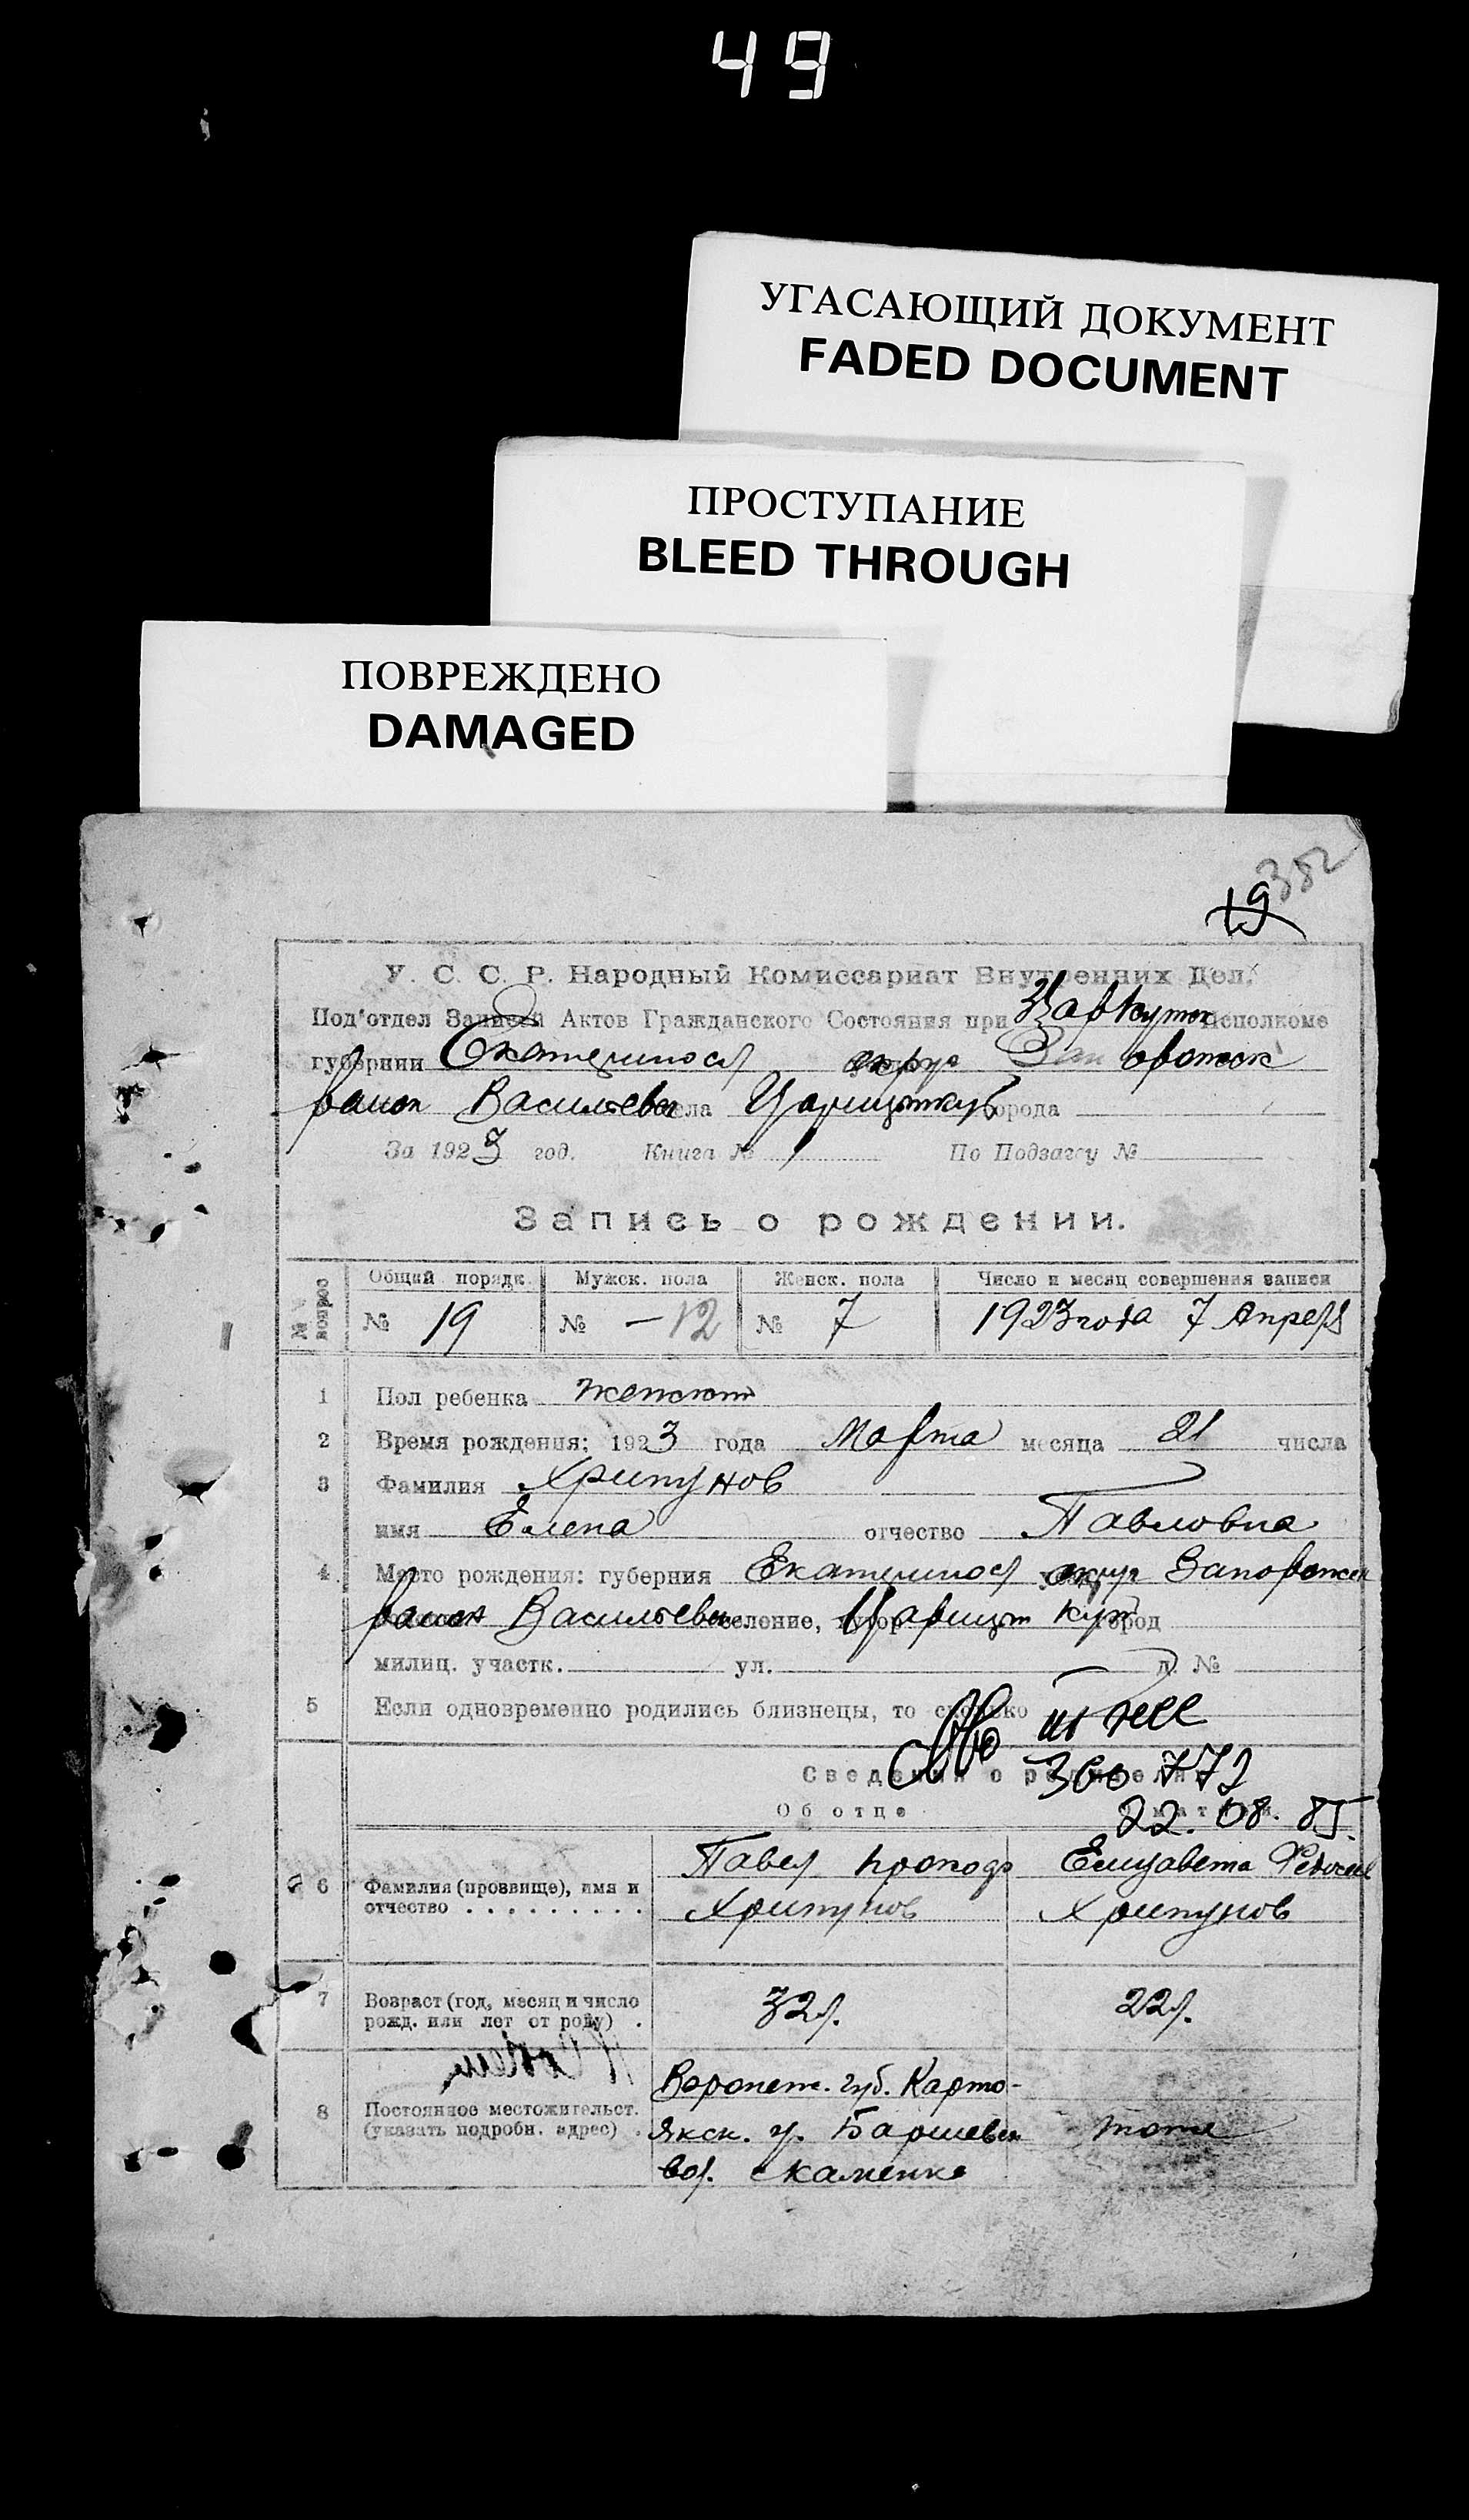 49
УГАСАЮЩИЙ ДОКУМЕНТ
FADED DOCUMENT
ПРОСТУПАНИЕ
BLEED THROUGH
ПОВРЕЖДЕНО
DAMAGED
382
19
У. С. С. Р. Народный Комиссариат Внутренних Дел.
Под'отдел Записи Актов Гражданского Состояния при Исполкоме
губернии Екатериносл округ Запорожск
район Василев села Царицткут города
За 1923 год. Книга № 1 По Подзагсу №
Запись о рождении.
№ вопроса Общий порядк. Мужск. пола Женск. пола Число и месяц совершения записи
№ 19 № — 12 № 7 1923 года 7 Апреля
1 Пол ребенка женский
2 Время рождения: 1923 года Марта месяца 21 числа
3 Фамилия Хрипунов
имя Елена отчество Павловна
4 Место рождения: губерния Екатериносл округ Запорожск
район Василев селение, хутор Царицт Кут город
милиц. участк. ул. д. №
5 Если одновременно родились близнецы, то сколько
360772
Сведения о родителях
Об отце О матери
22.08.85.
6 Фамилия (прозвище), имя и Павел Прокоф Елизавета Федосеев
отчество Хрипунов Хрипунов
7 Возраст (год, месяц и число 32 л. 22 л.
рожд. или лет от роду)
Воронеж. губ. Карто-
8 Постоянное местожительст. якск. у.
(указать подробн. адрес) тоже
вол. с Каменка